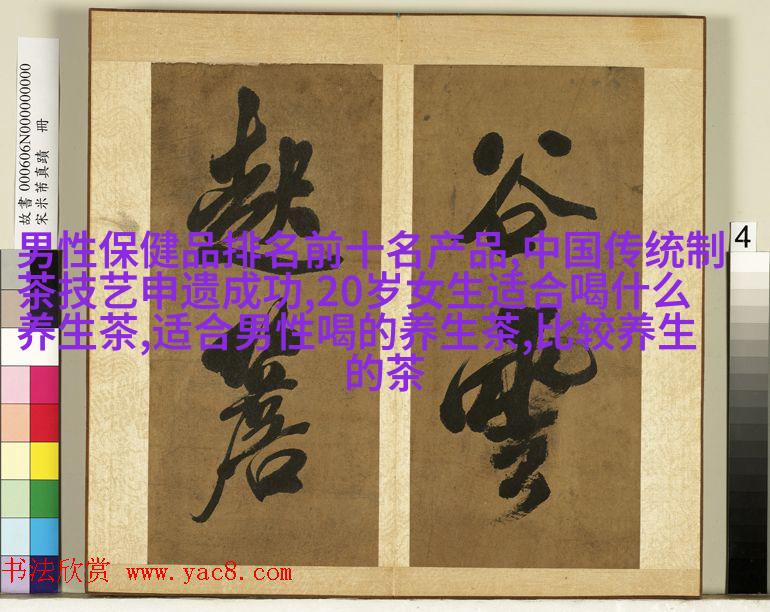 故書 000606N000000000
宋米芾真蹟 冊
谷
4
男性保健品排名前十名产品,中国传统制
茶技艺申遗成功,20岁女生适合喝什么
养生茶,适合男性喝的养生茶,比较养生
的茶
书法欣赏 www.yac8.com